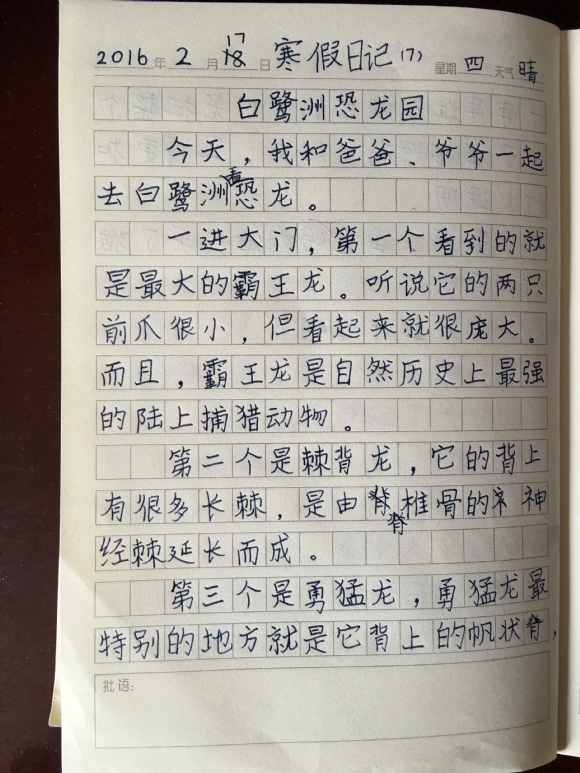 2016年2月17日 寒假日记(7) 星期四 天气晴
白鹭洲恐龙园
今天，我和爸爸、爷爷一起
去白鹭洲看恐龙。
一进大门，第一个看到的就
是最大的霸王龙。听说它的两只
前爪很小，但看起来就很庞大。
而且，霸王龙是自然历史上最强
的陆上捕猎动物。
第二个是棘背龙，它的背上
有很多长棘，是由脊椎骨的神
经棘延长而成。
第三个是勇猛龙，勇猛龙最
特别的地方就是它背上的帆状脊，
批语：